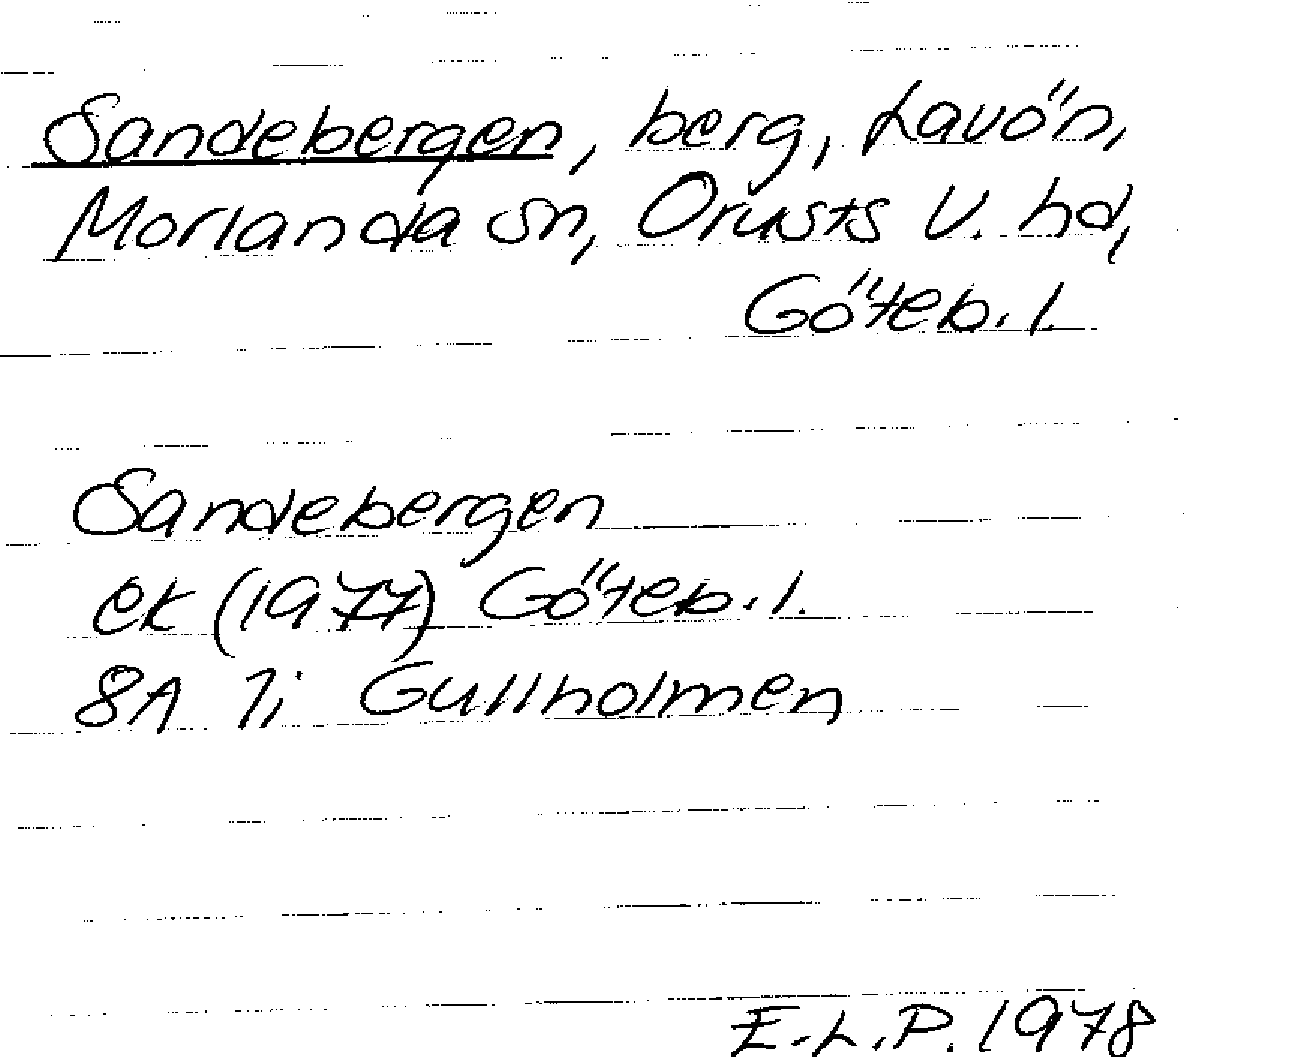 Sandebergen, berg, Lavön,
Morlanda sn, Orusts V. hd,
Göteb. l.
Sandebergen
ek (1977) Göteb. l.
8A 7i Gullholmen
E.L.P. 1978